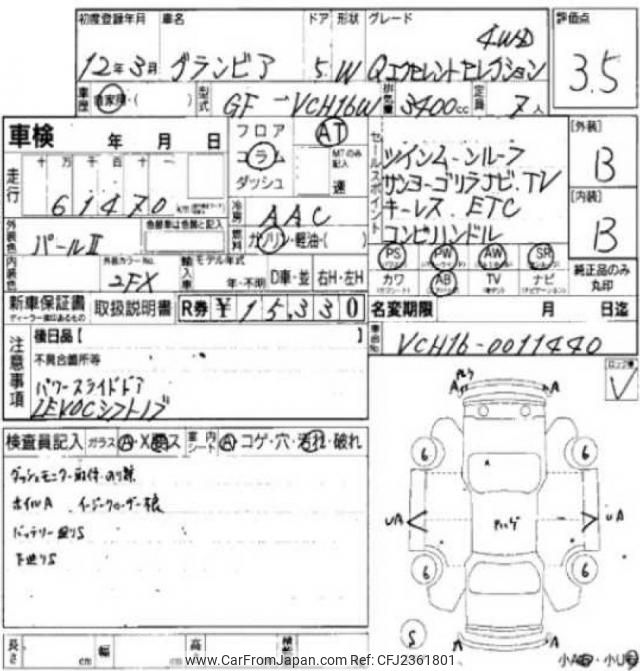 初度登録年月 車名 ドア 形状 グレード 評価点
4WD
12年3月 グランビア 5 W Qエクセレントセレクション 3.5
車歴 自家用・( ) 型式 GF-VCH16W 排気量 3400cc 定員 7人
車検 年 月 日
フロア AT
コラム MTのみ記入
ダッシュ 速
走行 十万千百十一
61470
セールスポイント
ツインムーンルーフ
サンヨーゴリラナビ.TV
キーレス.ETC
コンビハンドル
[外装] B
[内装] B
冷房 AAC
燃料 ガソリン・軽油・( )
外装色 パールII 色替車は色替と記入
PS PW AW SR
カワ AB TV ナビ
純正品のみ丸印
内装色 外装カラーNo. 2FX
輸入車 モデル年式 年・不明 D車・並 右H・左H
新車保証書 ディーラー捺印あるもの 取扱説明書 R券 ¥15,330
名変期限 月 日迄
車台No. VCH16-0011440
注意事項
後日品[ ]
不具合箇所等
パワースライドドア
検査員記入 ガラス A・X 室内 シート A コゲ・穴・汚れ・破れ
ホイルA
A A
A
6 6
UA UA
6 6
S
A A
長さ cm 幅 cm 高さ
www.CarFromJapan.com Ref: CFJ2361801